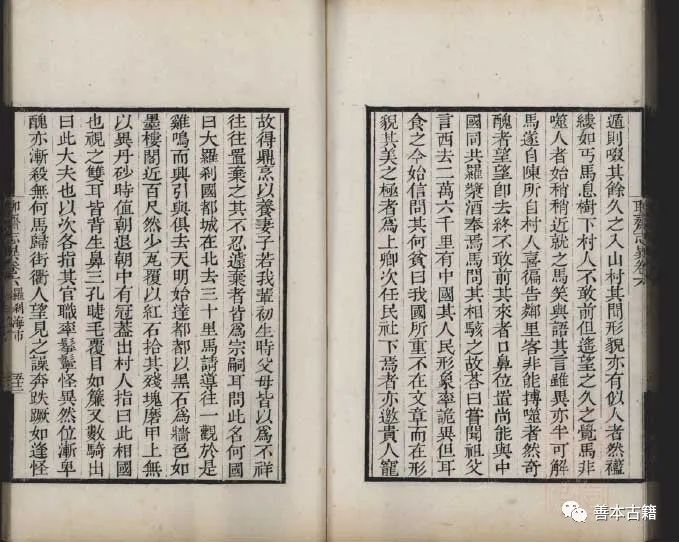 聊齋志異卷六
遁則啜其餘久之入山村其間形貌亦有似人者然襤
縷如丐馬息樹下村人不敢前但遙望之久之覺馬非
噬人者始稍稍近就之馬笑與語其言雖異亦半可解
馬遂自陳所自村人喜徧告鄰里客非能搏噬者然奇
醜者望望即去終不敢前其來者口鼻位置尚能與中
國同共羅漿酒奉焉馬問其相駭之故荅曰嘗聞祖父
言西去二萬六千里有中國其人民形象率詭異但耳
食之今始信問其何貧曰我國所重不在文章而在形
貌其美之極者為上卿次任民社下焉者亦邀貴人寵
故得鼎烹以養妻子若我輩初生時父母皆以為不祥
往往置棄之其不忍遽棄者皆為宗嗣耳問此名何國
曰大羅刹國都城在北去三十里馬請導往一觀於是
雞鳴而興引與俱去天明始達都都以黑石為牆色如
墨樓閣近百尺然少瓦覆以紅石拾其殘塊磨甲上無
以異丹砂時值朝退朝中有冠蓋出村人指曰此相國
也視之雙耳皆背生鼻三孔睫毛覆目如簾又數騎出
曰此大夫也以次各指其官職率鬇鬡怪異然位漸卑
醜亦漸殺無何馬歸街衢人望見之譟奔跌蹶如逢怪
聊齋志異卷六 羅刹海市
善本古籍